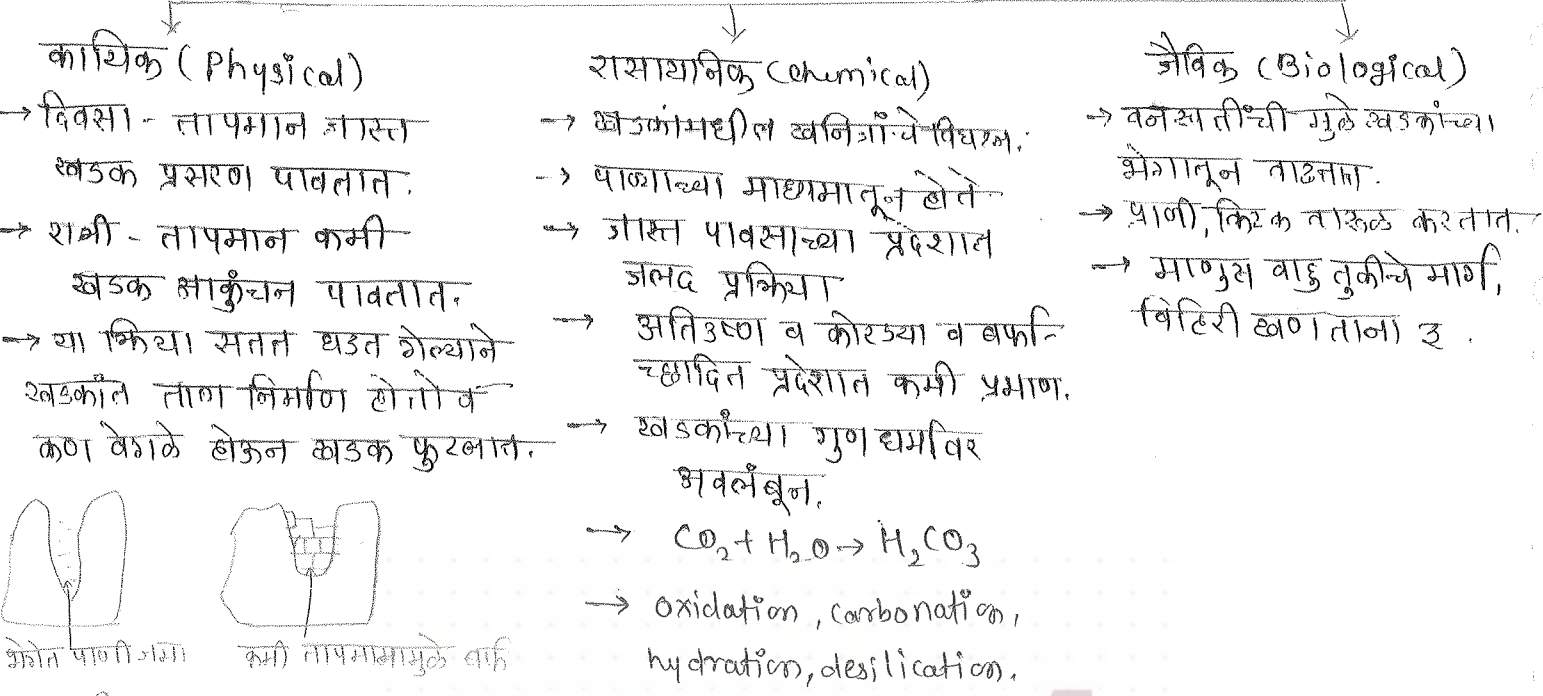 कायिक (Physical)
→ दिवसा - तापमान जास्त
खडक प्रसरण पावतात.
→ रात्री - तापमान कमी
खडक आकुंचन पावतात.
→ या क्रिया सतत घडत गेल्याने
खडकांत ताण निर्माण होतो व
कण वेगळे होऊन खडक फुटतात.
भेगेत पाणी जमा
कमी तापमानामुळे बर्फ
रासायनिक (chemical)
→ खडकांमधील खनिजांचे विघटन.
→ पाण्याच्या माध्यमातून होते
→ जास्त पावसाच्या प्रदेशात
जलद प्रक्रिया
→ अतिउष्ण व कोरड्या व बर्फा-
च्छादित प्रदेशात कमी प्रमाण.
→ खडकांच्या गुणधर्मावर
अवलंबून.
→ CO₂ + H₂O → H₂CO₃
→ oxidation, carbonation,
hydration, desilication.
जैविक (Biological)
→ वनस्पतींची मुळे खडकांच्या
भेगातून वाढतात.
→ प्राणी, किटक वारूळ करतात.
→ माणूस वाहतुकीचे मार्ग,
विहिरी खणताना इ.